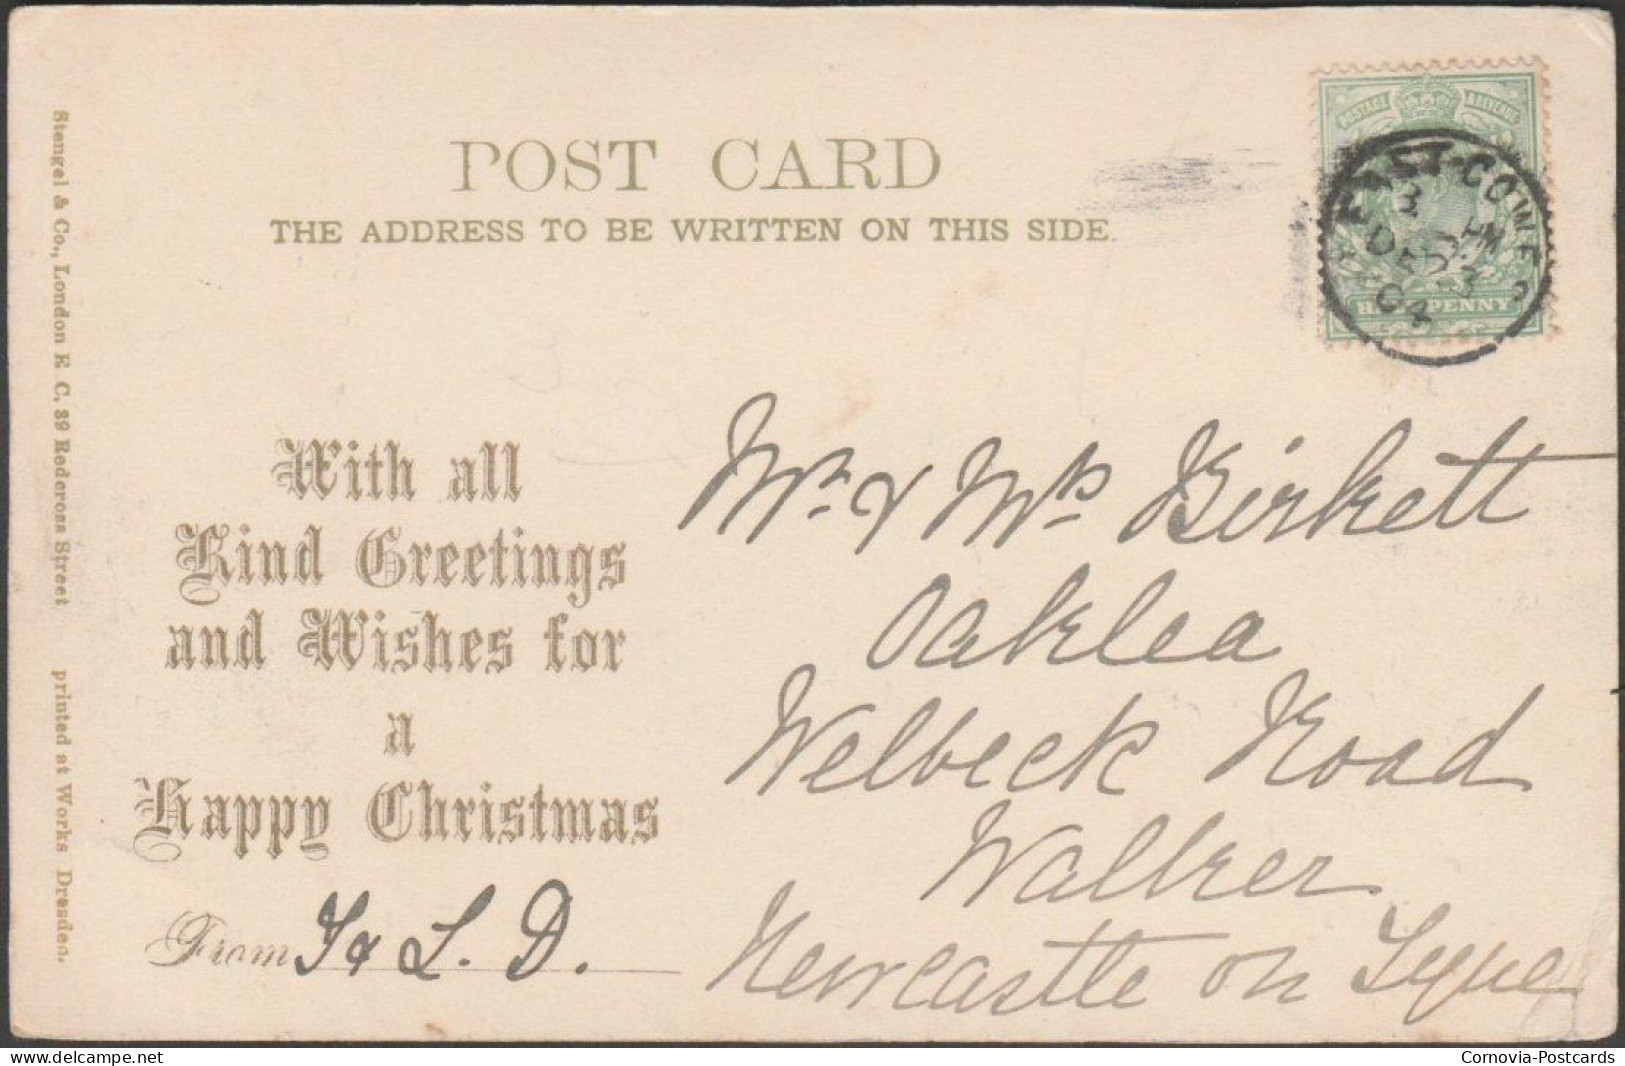 POST CARD
THE ADDRESS TO BE WRITTEN ON THIS SIDE.
POSTAGE & REVENUE
HALFPENNY
EAST-COWES
DE 23
04
Stengel & Co., London E C. 39 Redcross Street printed at Works Dresden.
With all
Kind Greetings
and Wishes for
a
Happy Christmas
From
& L. D.
Mr. & Mrs Birkett
Oaklea
Welbeck Road
Walker
Newcastle on Tyne
Cornovia-Postcards